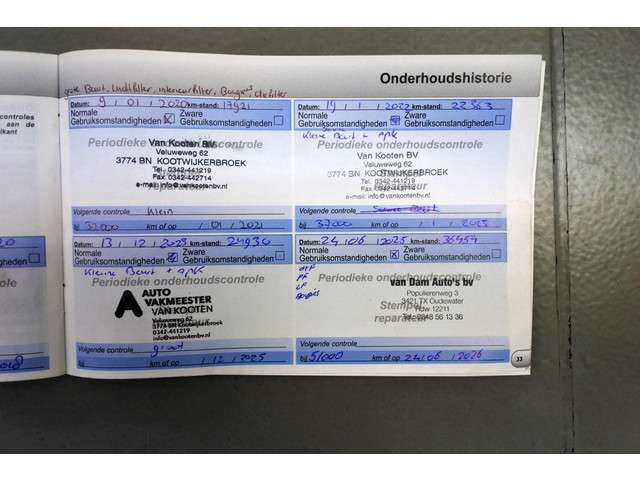 Onderhoudshistorie
Datum: 9 / 01 / 2020 km-stand: 17921
Normale
Gebruiksomstandigheden
Zware
Gebruiksomstandigheden
Periodieke onderhoudscontrole
Van Kooten BV
Veluweweg 62
3774 BN KOOTWIJKERBROEK
Tel. 0342-441219
Fax. 0342-442714
e-mail: info@vankootenbv.nl
reparateur
Volgende controle Klein
bij 32000 km of op / 01 / 2021
Datum: 19 / 1 / 2022 km-stand: 22363
Normale
Gebruiksomstandigheden
Zware
Gebruiksomstandigheden
Kleine Beurt + apk
Periodieke onderhoudscontrole
Van Kooten BV
Veluweweg 62
3774 BN KOOTWIJKERBROEK
Tel. 0342-441219
Fax. 0342-442714
e-mail: info@vankootenbv.nl
reparateur
Volgende controle
bij 37000 km of op / 1 / 2023
Datum: 13 / 12 / 2023 km-stand: 27930
Normale
Gebruiksomstandigheden
Zware
Gebruiksomstandigheden
Kleine Beurt + apk
Periodieke onderhoudscontrole
AUTO
VAKMEESTER
VAN KOOTEN
Veluweweg 62
3774 BN Kootwijkerbroek
0342-441219
info@vankootenbv.nl
Volgende controle groot
bij km of op / 12 / 2025
Datum: 24 / 06 / 2025 km-stand: 36454
Normale
Gebruiksomstandigheden
Zware
Gebruiksomstandigheden
Periodieke onderhoudscontrole
van Dam Auto's bv
Populierenweg 3
3421 TX Oudewater
Rdw 12211
Tel. 0348 56 13 36
Stempel
reparateur
Volgende controle
bij 51000 km of op 24 / 06 / 2026
33